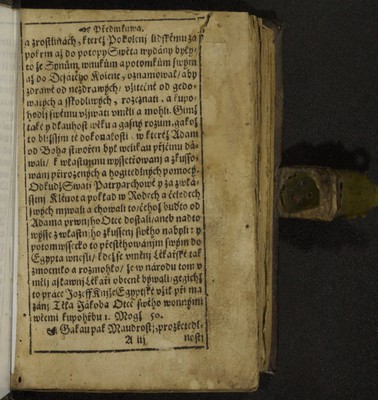 Předmluwa.
a zrostlinách, kteréž Pokolenj lidskému za
pokrm až do potopy Swěta wydány byly/
to že Synům, wnukům a potomkům swým
až do Desátého Kolene, oznamowal/ aby
zdrawé od nezdrawých/ vžitečné od gedo-
watých a sskodliwých, rozeznati, a ku po-
hodlj swému vžjwati vměli a mohli. Gimž
také y dlauhost wěku a gasný rozum, gakož
to bližssjm té dokonalosti, w kteréž Adam
od Boha stwořen byl welikau přjčinu dá-
wali/ k wlastnjmu wyssetřowanj a zkusso-
wanj přirozených a hogitedlných pomocý.
Odkudž Swatj Patryarchowé y za zwlá-
sstnj Klénot a poklad w Rodech a čeledech
swých mjwali a chowali to/ což buďto od
Adama prwnjho Otce dostali/ aneb nad to
wýsse z wlastnjho zkussenj swého nabyli: y
potom wssecko to přestěhowánjm swým do
Egypta wnesli/ kdež se vměnj Lékařské tak
zmocnilo a rozmohlo/ že w národu tom v-
mělj a slawnj Lékaři obecně býwali: gegichž
to práce Jozeff Knjže Egyptské vžil při ma
zánj Těla Jákoba Otce swého wonnými
wěcmi ku pohřbu 1. Mogž. 50.
Gakau pak Maudrost/ prozřetedl-
A iij
nost: